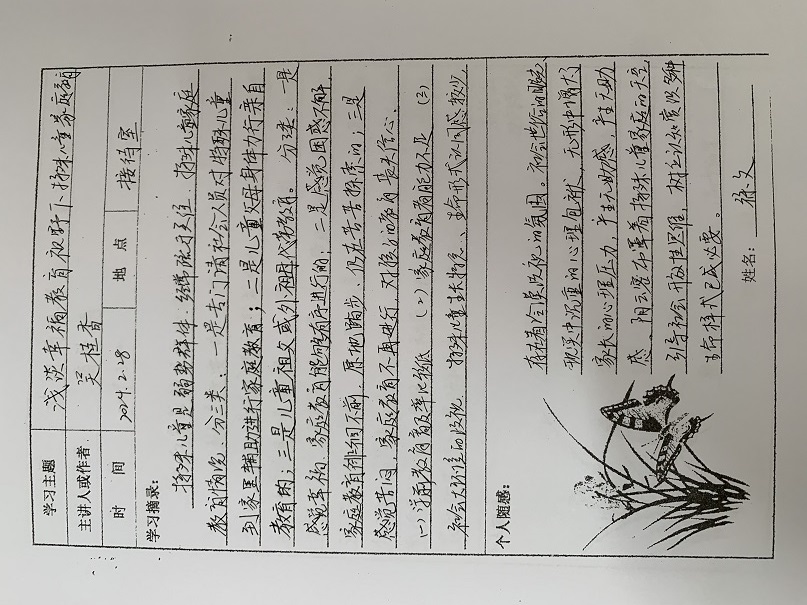 学习主题 浅谈幸福教育视野下特殊儿童家庭教育
主讲人或作者 吴桂香
时 间 2024.2.28 地 点 接待室
学习摘录：
特殊儿童是弱势群体，经常院方关住，特殊儿童家庭
教育情况，分三类：一是专门请社会人员对特殊儿童
到家里辅助进行家庭教育；二是儿童父母身体力行亲自
教育的；三是儿童祖父或外祖母代劳教育。 分三类：一是
感觉幸福，家庭教育能够有序进行的；二是感觉困惑不解，
家庭教育徘徊不前，原地踏步，仍在苦苦探索的；三是
感觉苦闷，家庭教育不再进行，对孩子的教育丧失信心。
(一)学前教育普及率比较低 (2)家庭教育者能力不足 (3)
社会大环境的歧视 特殊儿童生长特点、生命形式认同感较少，
个人随感：
存在着冷漠歧视的氛围。社会世俗的眼光，
现实中沉重的心理包袱，无形中增大了
家长的心理压力，产生无助感，产生无助
感。阴云密布罩着特殊儿童家庭的天空，
引导社会开放性思维，树立认知赏识多种
生命样式已成必要。
姓名： 徐文